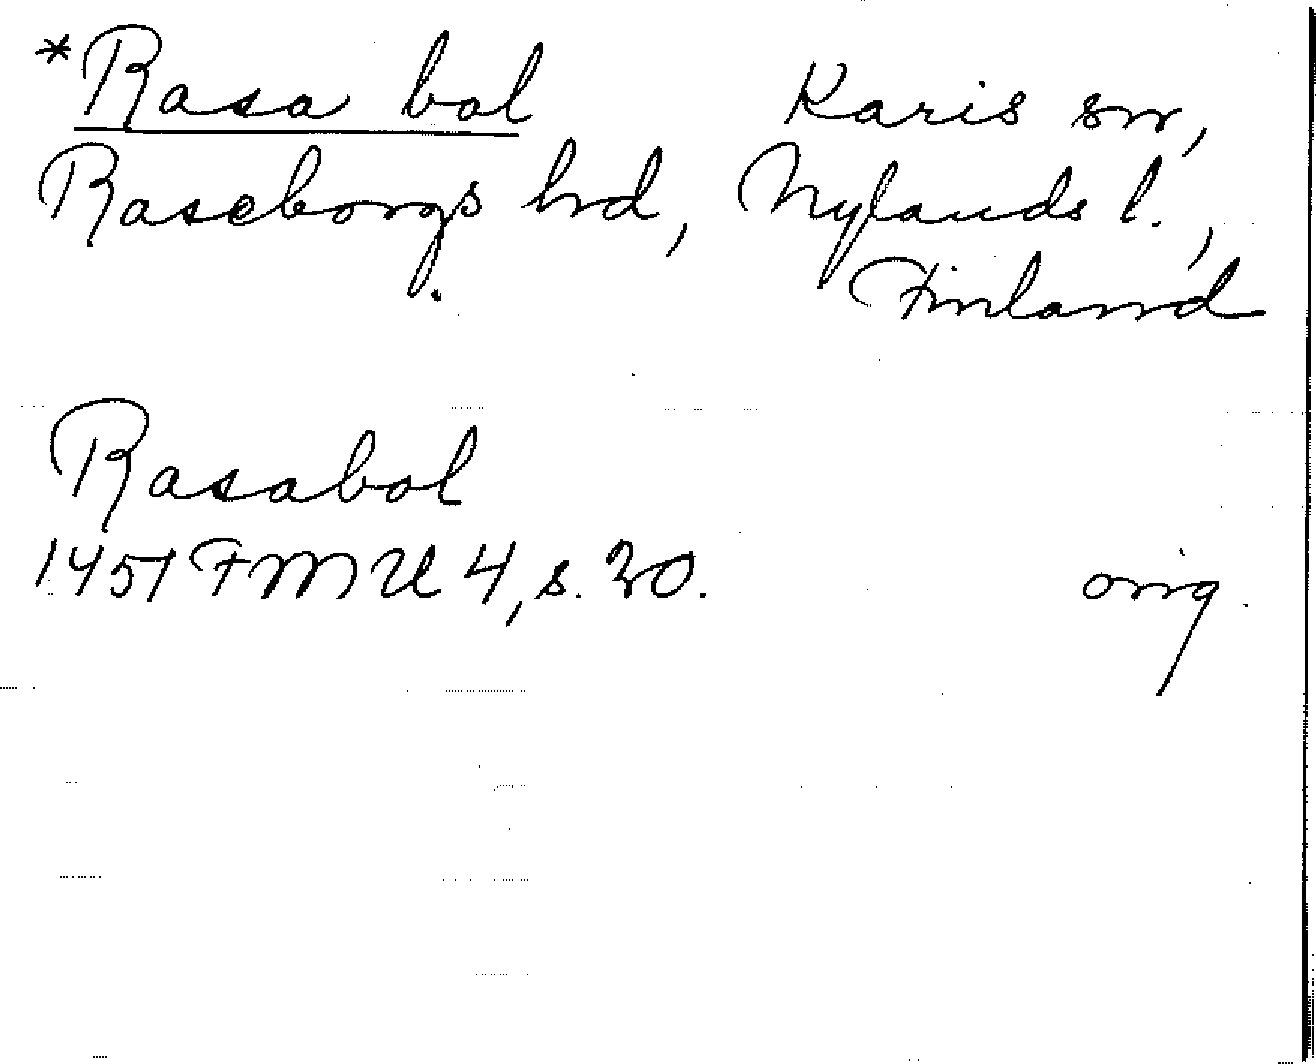 *Rasa bol Karis sn,
Raseborgs hrd, Nylands l.,
Finland
Rasabol
1451 FMU 4, s. 20. orig.